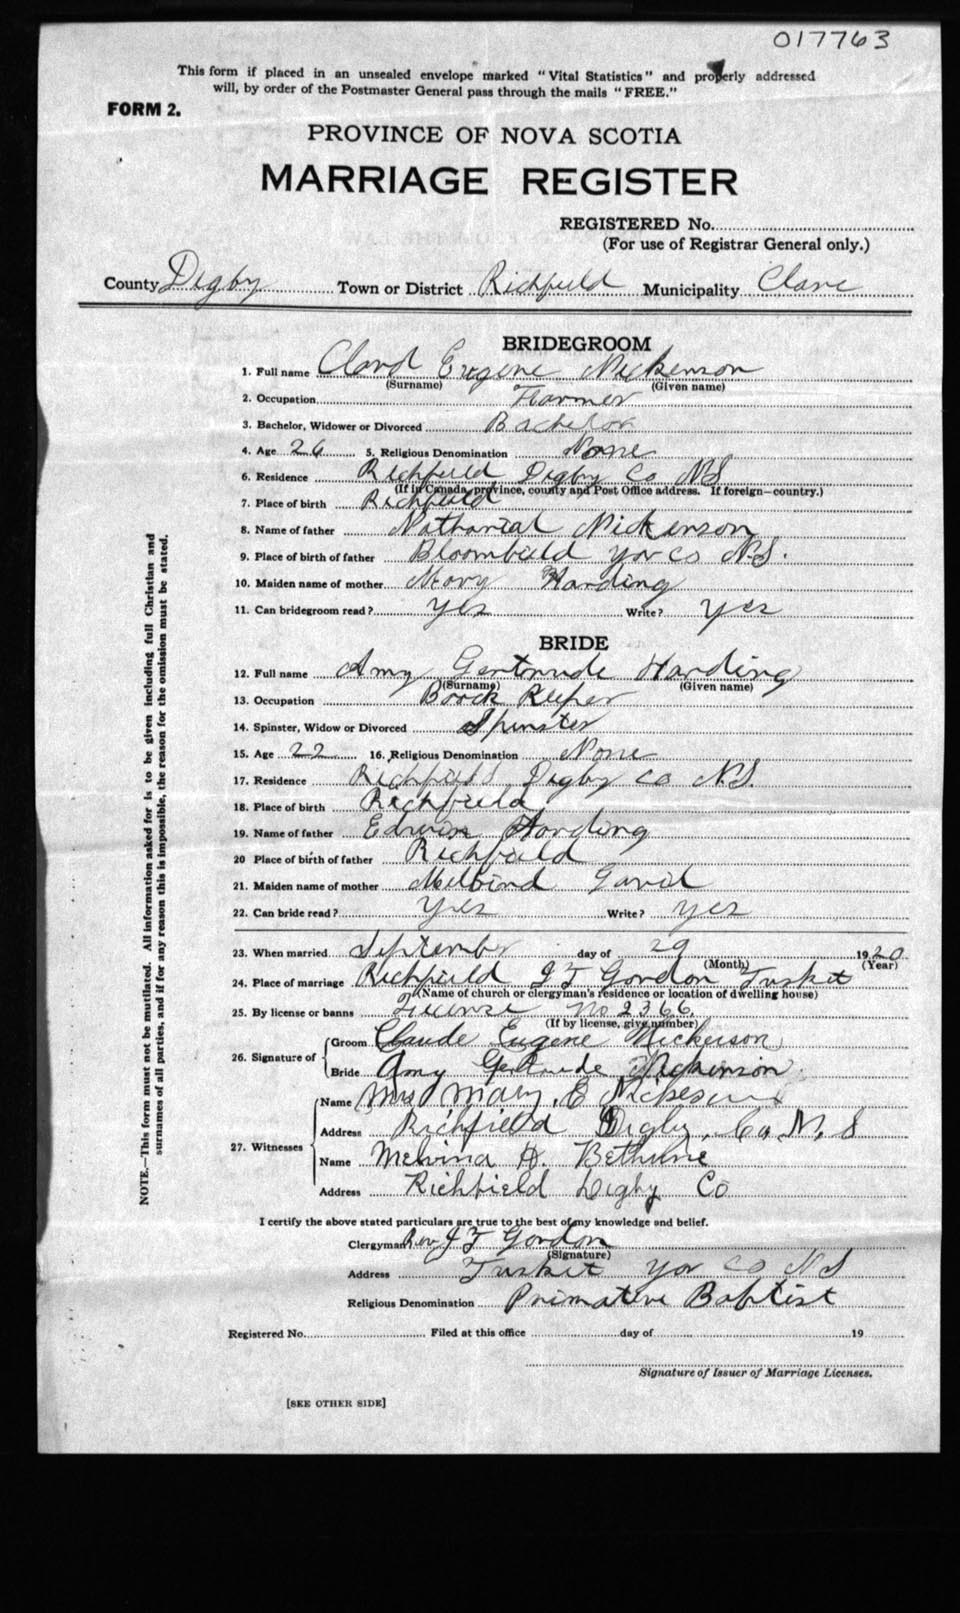 017763
This form if placed in an unsealed envelope marked "Vital Statistics" and properly addressed
will, by order of the Postmaster General pass through the mails "FREE."
FORM 2.
PROVINCE OF NOVA SCOTIA
MARRIAGE REGISTER
REGISTERED No.
(For use of Registrar General only.)
County Digby Town or District Richfield Municipality Clare
BRIDEGROOM
1. Full name Clard Eugene Nickerson
(Surname) (Given name)
2. Occupation Farmer
3. Bachelor, Widower or Divorced Bachelor
4. Age 26 5. Religious Denomination None
6. Residence Richfield Digby Co N.S
(If in Canada, province, county and Post Office address. If foreign—country.)
7. Place of birth Richfield
8. Name of father Nathanial Nickerson
9. Place of birth of father Bloomfield Yar co N.S.
10. Maiden name of mother Mary Harding
11. Can bridegroom read? Yes Write? Yes
BRIDE
12. Full name Amy Gertrude Harding
(Surname) (Given name)
13. Occupation Boock Keeper
14. Spinster, Widow or Divorced Spinster
15. Age 22 16. Religious Denomination None
17. Residence Richfield Digby co N.S.
18. Place of birth Richfield
19. Name of father Edwin Harding
20 Place of birth of father Richfield
21. Maiden name of mother
22. Can bride read? Yes Write? Yes
23. When married September day of 29 1920
(Month) (Year)
24. Place of marriage Richfield J T Gordon Tusket
(Name of church or clergyman's residence or location of dwelling house)
25. By license or banns License No 2366
(If by license, give number)
26. Signature of Groom Claude Eugene Nickerson
Bride Amy Gertrude Nickinson
27. Witnesses Name Mrs Mary E
Address Richfield Digby, Co N. S
Name Melvina A. Bethune
Address Richfield Digby Co
I certify the above stated particulars are true to the best of my knowledge and belief.
Clergyman Rev J T Gordon
(Signature)
Address Tusket Yar co N S
Religious Denomination Primative Baptist
Registered No. Filed at this office day of 19
Signature of Issuer of Marriage Licenses.
[SEE OTHER SIDE]
NOTE.—This form must not be mutilated. All information asked for is to be given including full Christian and
surnames of all parties, and if for any reason this is impossible, the reason for the omission must be stated.